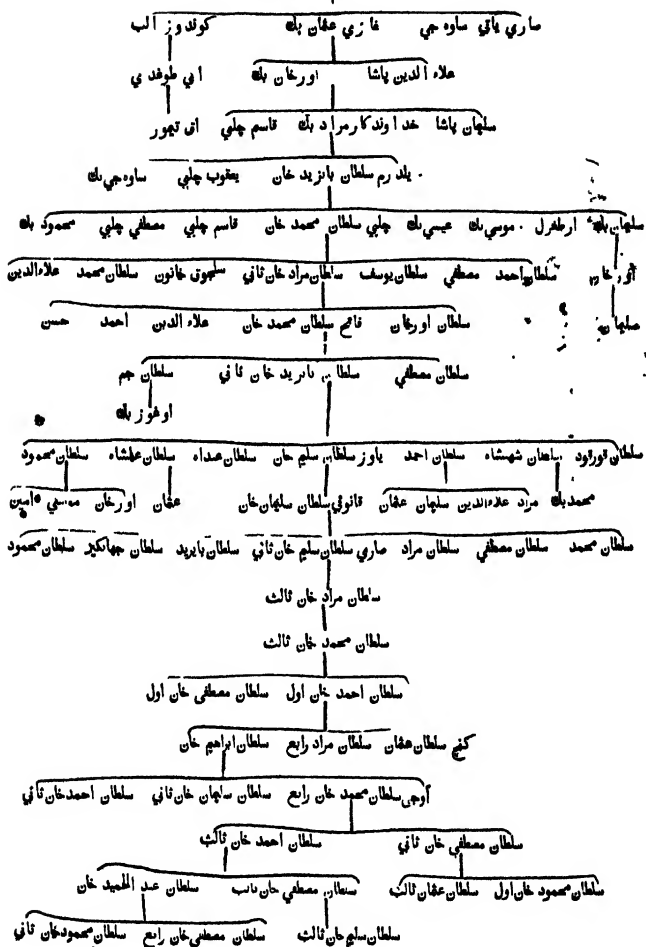 صاري ياتي ساوه جي غازي عثمان بك كوندوز الب
علاء الدين پاشا اورخان بك اي طوغدي
سلیمان پاشا خداوندكار مراد بك قاسم چلبي اق تيمور
يلدرم سلطان بايزيد خان يعقوب چلبي ساوه جي بك
سلیمان بك ارطغرل موسي بك عيسي بك چلبي سلطان محمد خان قاسم چلبي مصطفي چلبي محمود بك
سلطان احمد مصطفي سلطان يوسف سلطان مراد خان ثاني سلجوق خاتون سلطان محمد علاء الدين
سلطان اورخان فاتح سلطان محمد خان علاء الدين احمد حسن
سلطان مصطفي سلطان بايزيد خان ثاني سلطان جم
اوغوز بك
سلطان قورقود سلطان شهنشاه سلطان احمد ياوز سلطان سليم خان سلطان عبداه سلطان علمشاه سلطان محمود
محمد بك مراد علاء الدين سلیمان عثمان قانوني سلطان سلیمان خان عثمان اورخان موسي امين
سلطان محمد سلطان مصطفي سلطان مراد صاري سلطان سليم خان ثاني سلطان بايزيد سلطان جهانكير سلطان محمود
سلطان مراد خان ثالث
سلطان محمد خان ثالث
سلطان احمد خان اول سلطان مصطفي خان اول
كنج سلطان عثمان سلطان مراد رابع سلطان ابراهيم خان
آوجي سلطان محمد خان رابع سلطان سلیمان خان ثاني سلطان احمد خان ثاني
سلطان مصطفي خان ثاني سلطان احمد خان ثالث
سلطان محمود خان اول سلطان عثمان ثالث سلطان مصطفي خان ثالث سلطان عبد الحميد خان
سلطان سليم خان ثالث سلطان مصطفي خان رابع سلطان محمود خان ثاني